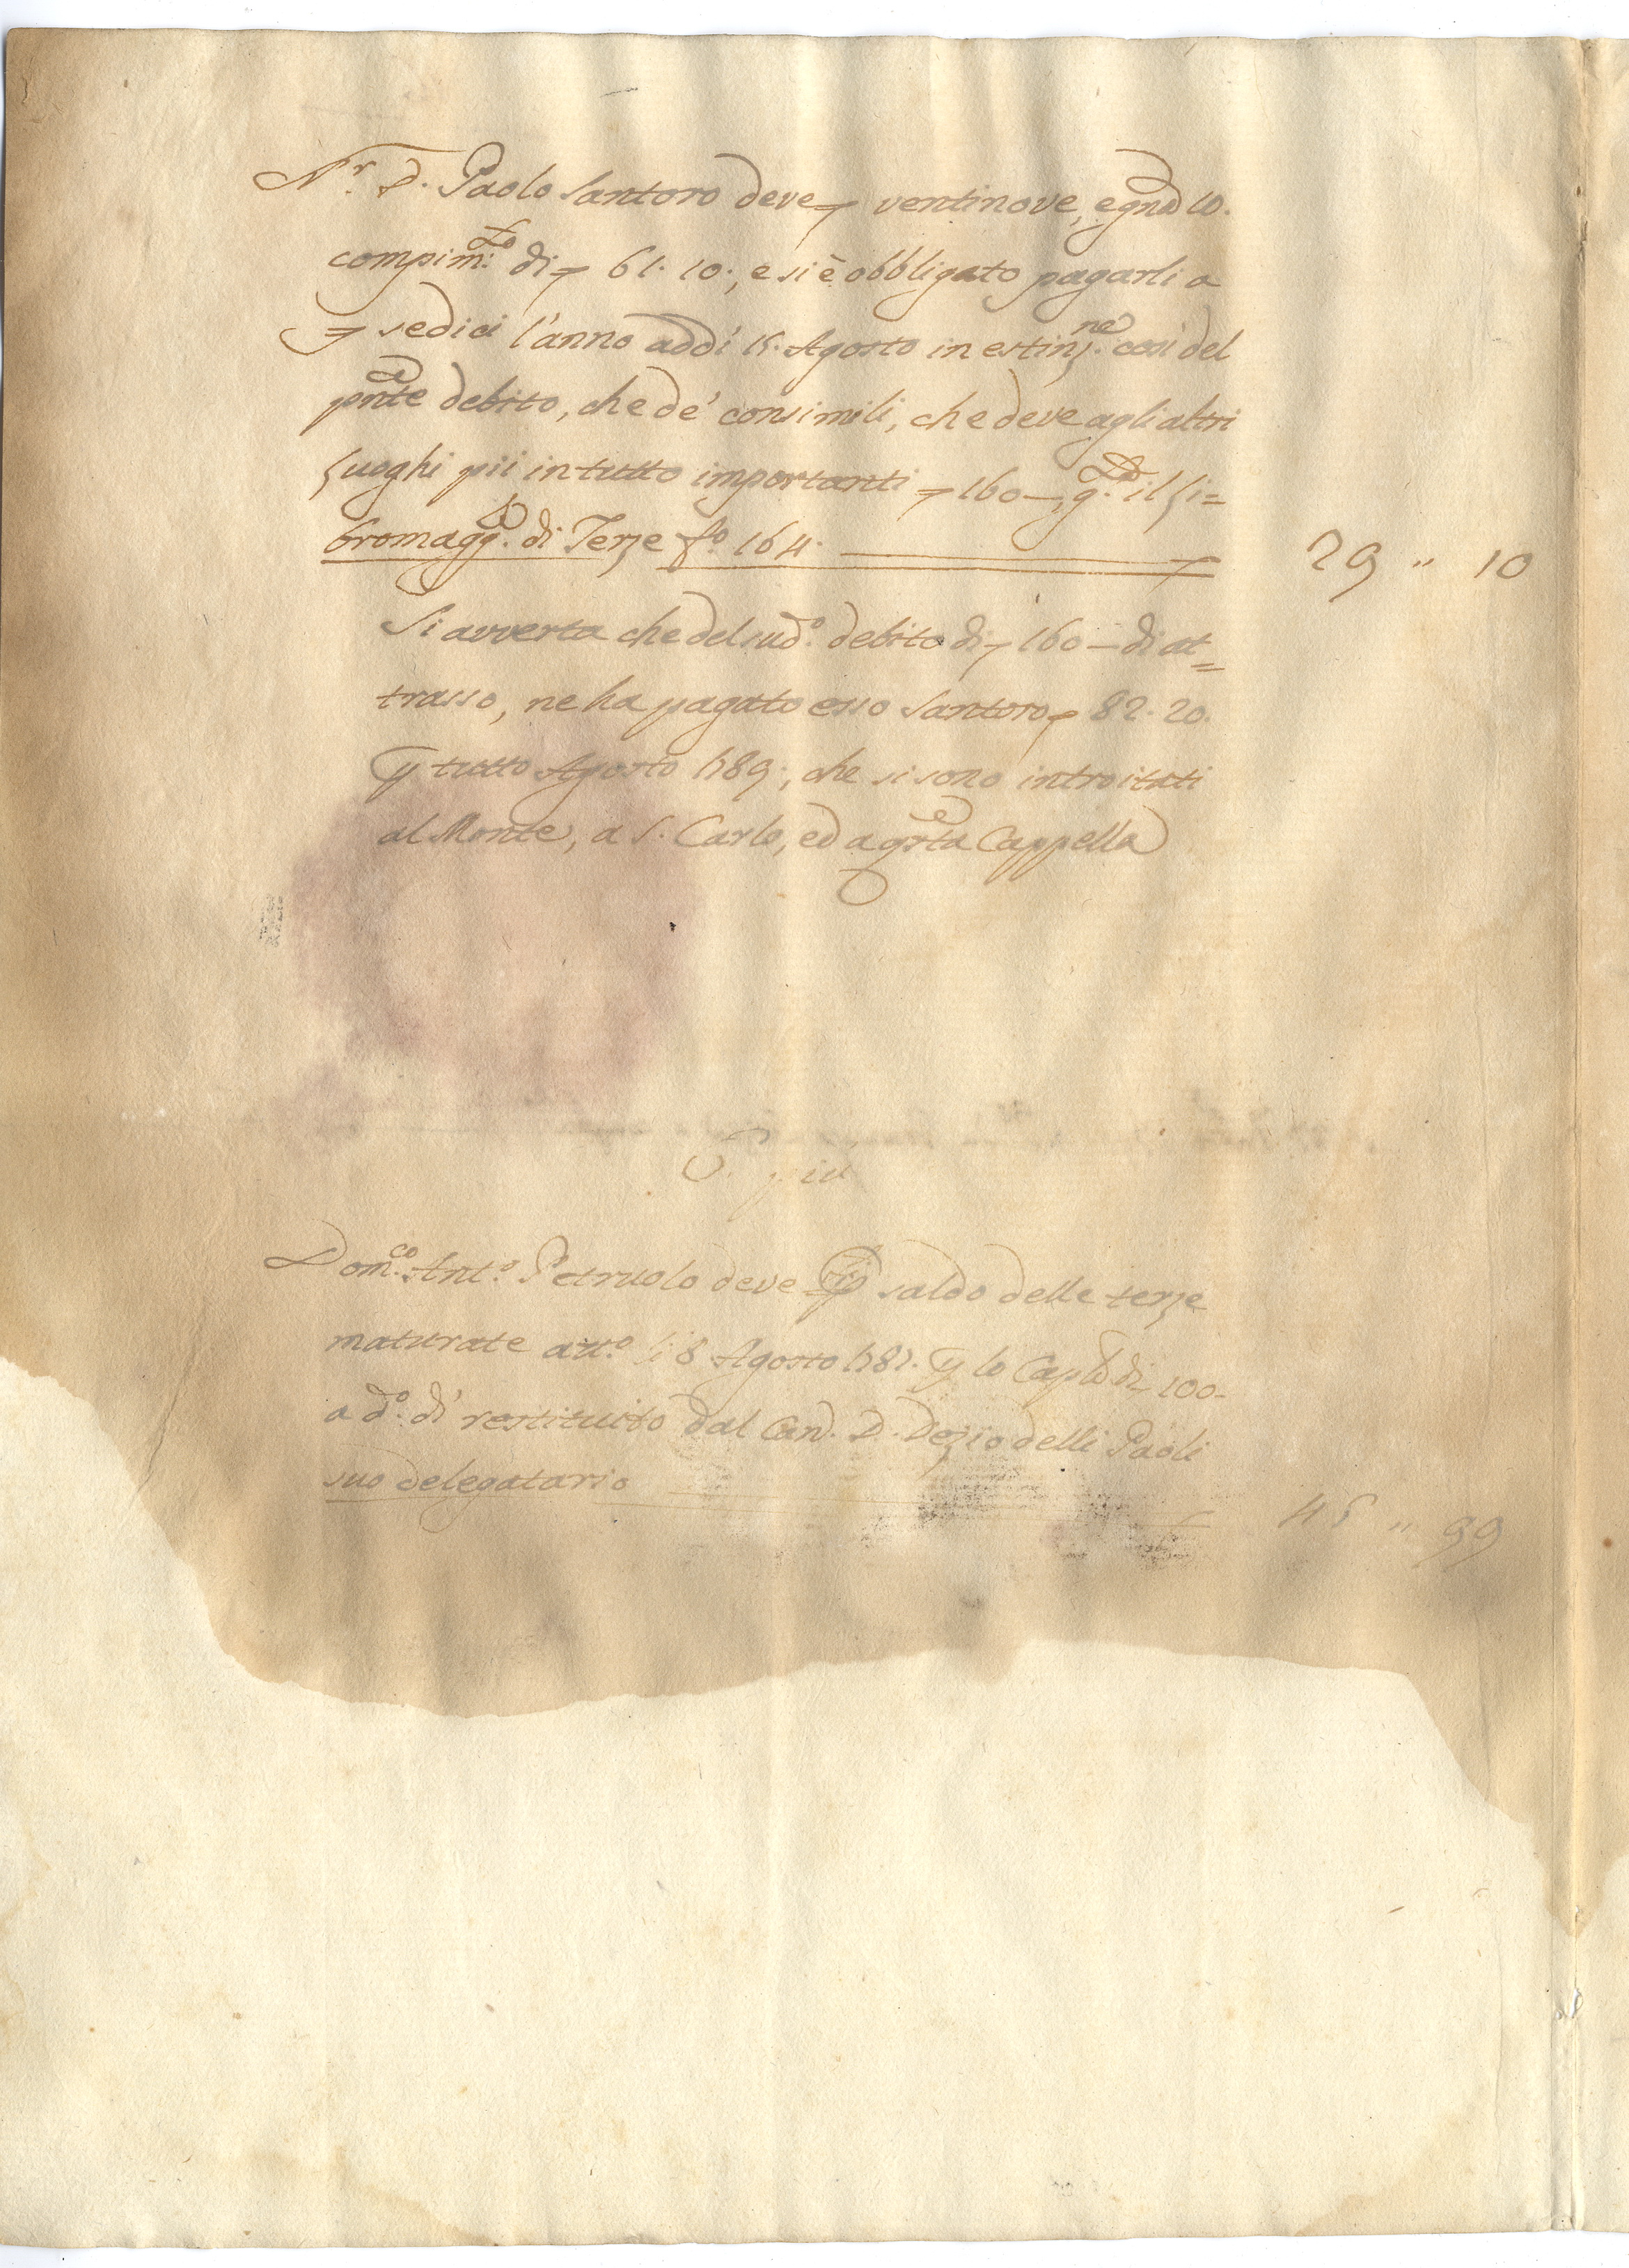 Nr. D. Paolo Santoro deve ventinove, e gna 10.
compim:to di 61. 10:, e si è obbligato pagarli a
sedici l'anno addì 15. Agosto in estinz.ne così del
pnte debito, che de' consimili, che deve agli altri
Luoghi pii in tutto importanti 160 — il Li=
bro magg.e di Terze fo. 164. 29 " 10
Si avverta che del sud.o debito di 160 — di at=
trasso, ne ha pagato esso Santoro 82. 20.
p tutto Agosto 1789:, che si sono introitati
al Monte, a S. Carlo, ed a qsta Cappella
Dom.co Ant.o Petruolo deve saldo delle terze
maturate a tt.o li 8 Agosto 1781. p lo Caple di 100-
a d.o dì restituito dal Can. D. Dezio delli Paoli
suo delegatario 45 " 99